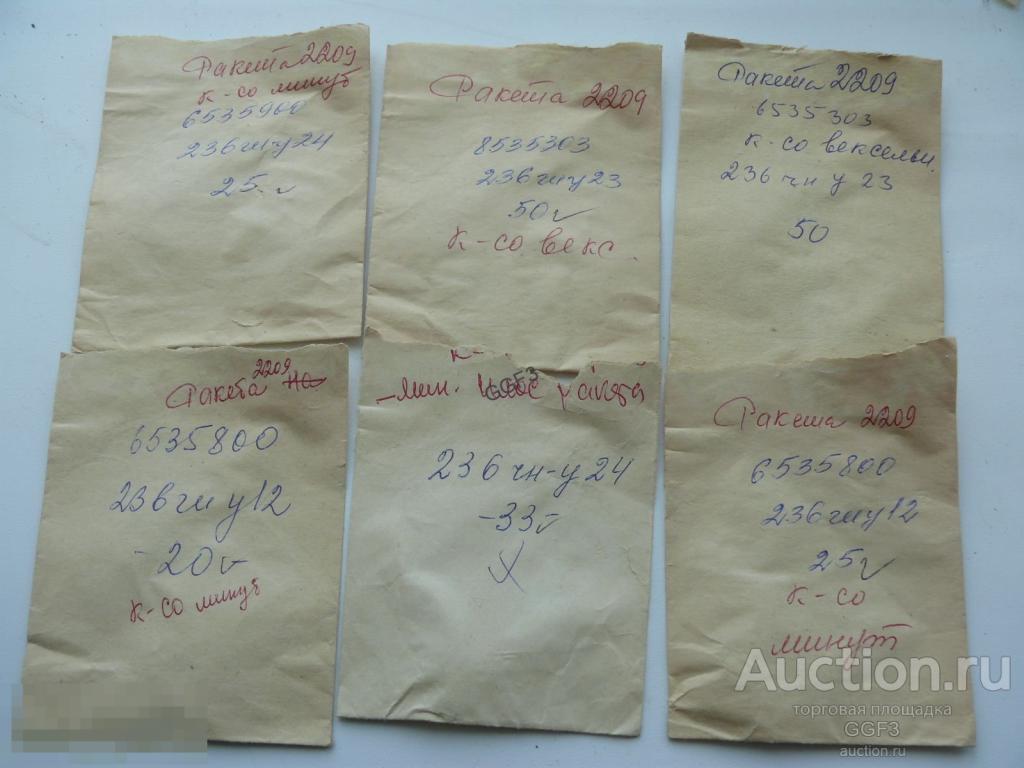 Ракета 2209
к-со минут
6535900
236чн-у24
25
Ракета 2209
8535303
236чну23
50
к-со векс.
Ракета 2209
6535303
к-со вексельн.
236 чн у 23
50
2209
Ракета
6535800
236чну12
-20
к-со минут
к-
мин.
GGF3
236чн-у24
-33
Ракета 2209
6535800
236чну12
25
к-со
минут
Auction.ru
торговая площадка
GGF3
auction.ru